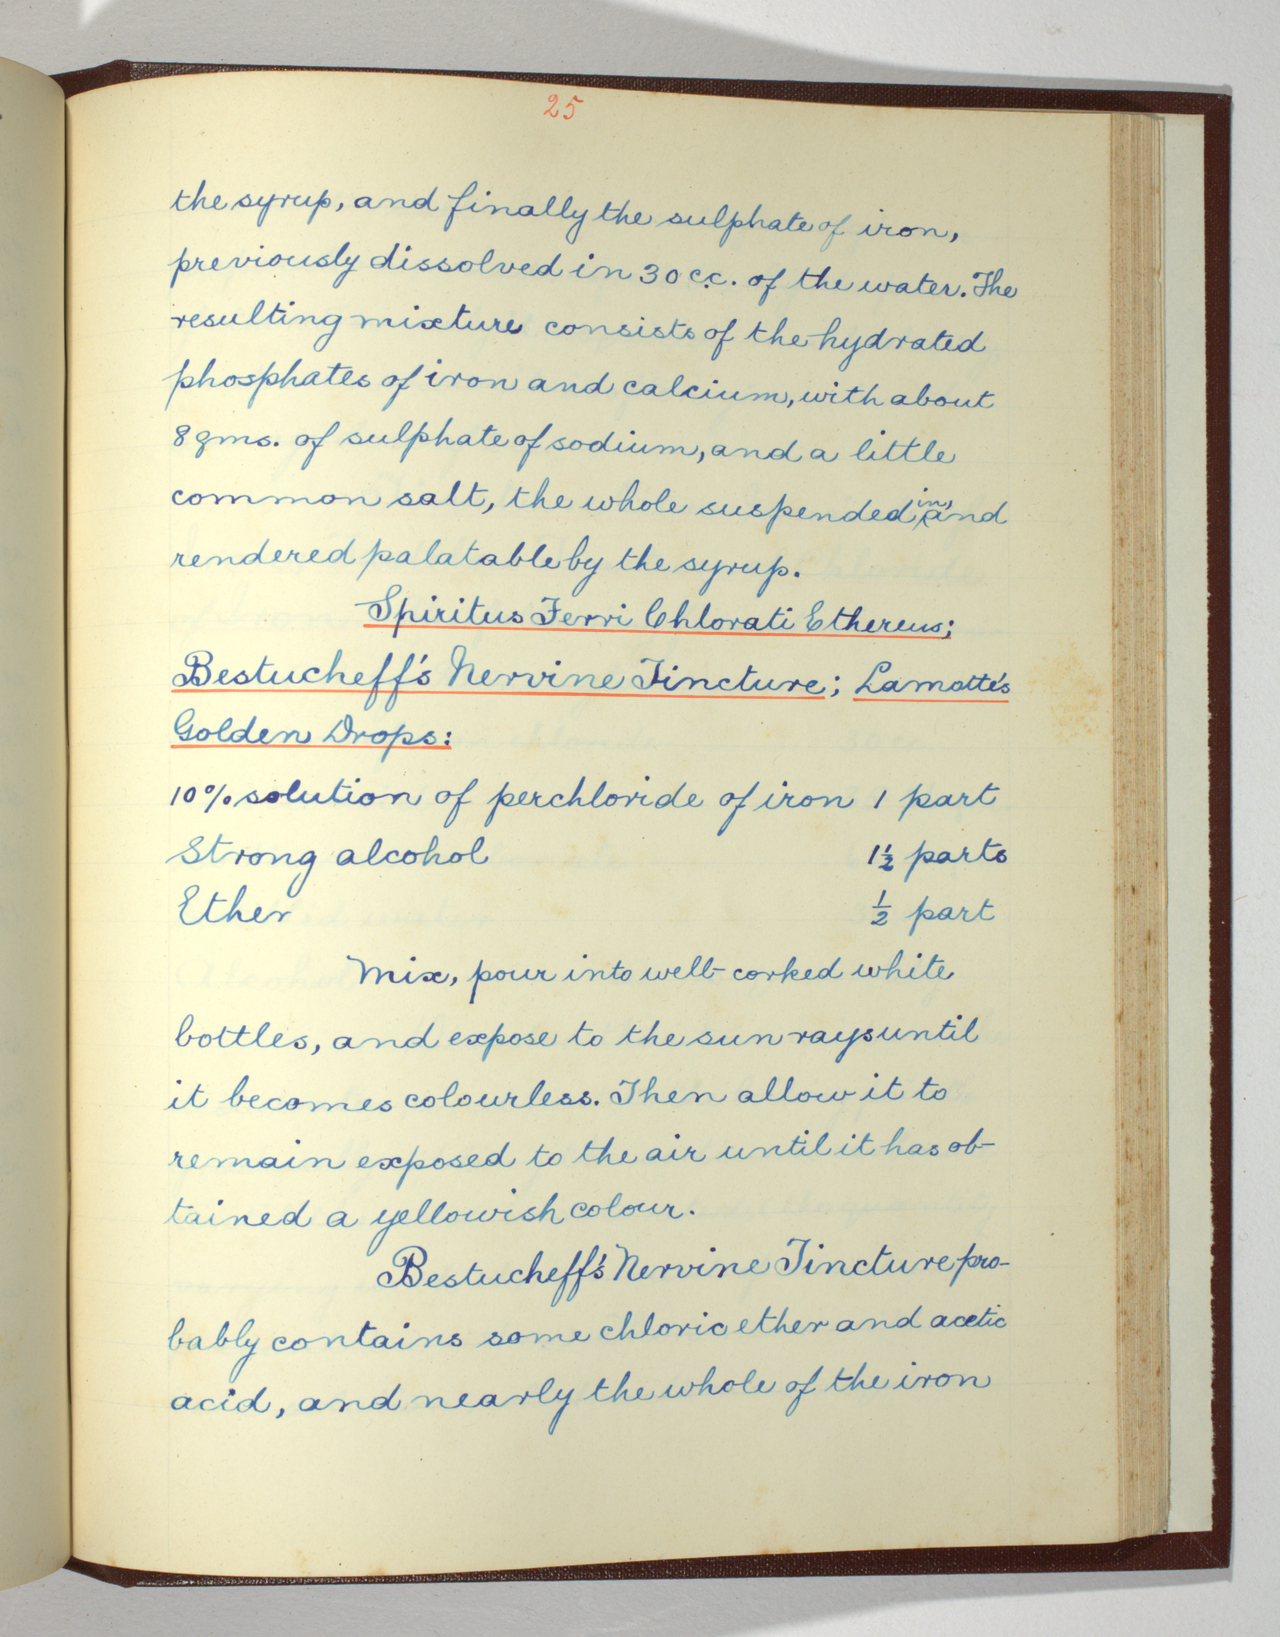 25
the syrup, and finally the sulphate of iron,
previously dissolved in 30 c.c. of the water. The
resulting mixture consists of the hydrated
phosphates of iron and calcium, with about
8 gms. of sulphate of sodium, and a little
common salt, the whole suspended in, and
rendered palatable by the syrup.
Spiritus Ferri Chlorati Ethereus;
Bestucheff's Nervine Tincture; Lamotte's
Golden Drops:
10% solution of perchloride of iron 1 part
Strong alcohol 1½ parts
Ether ½ part
Mix, pour into well-corked white
bottles, and expose to the sun rays until
it becomes colourless. Then allow it to
remain exposed to the air until it has ob-
tained a yellowish colour.
Bestucheff's Nervine Tincture pro-
bably contains some chloric ether and acetic
acid, and nearly the whole of the iron